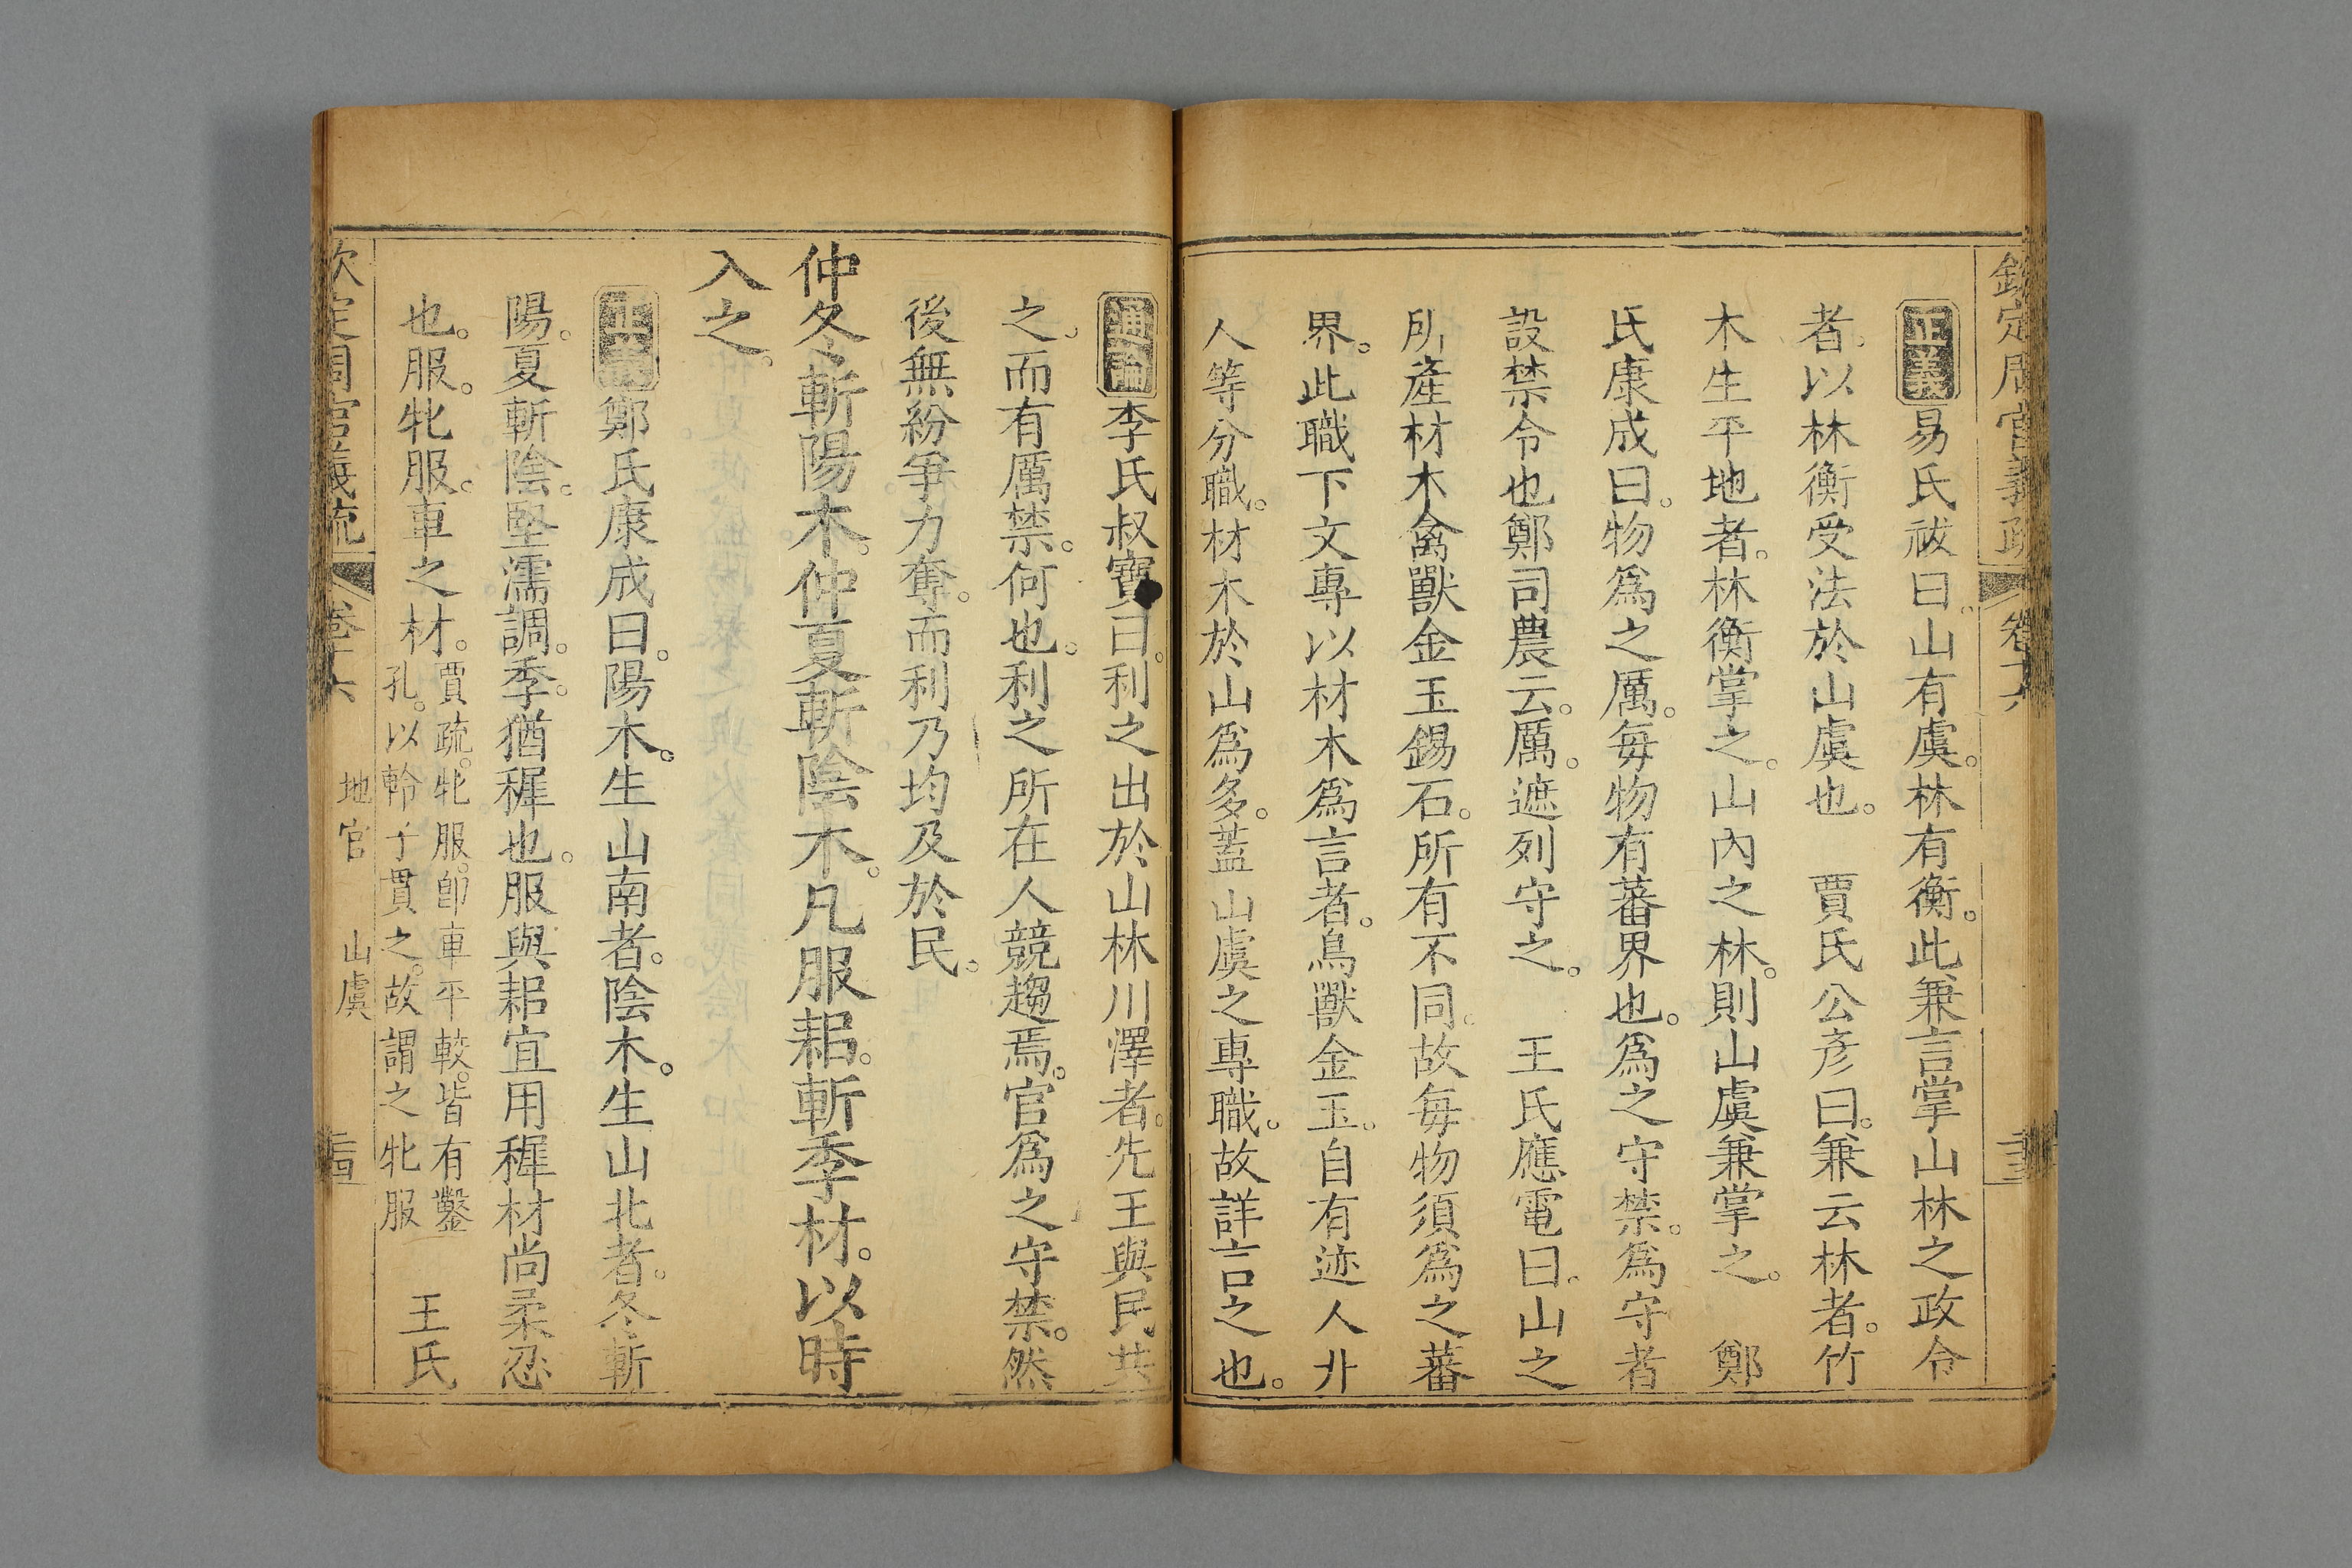 欽定周官義疏 卷十六
正義 易氏祓曰。山有虞。林有衡。此兼言掌山林之政令
者。以林衡受法於山虞也。 賈氏公彥曰。兼云林者。竹
木生平地者。林衡掌之。山內之林。則山虞兼掌之。 鄭
氏康成曰。物爲之厲。每物有蕃界也。爲之守禁。爲守者
設禁令也。鄭司農云。厲。遮列守之。 王氏應電曰。山之
所產材木禽獸金玉錫石。所有不同。故每物須爲之蕃
界。此職下文專以材木爲言者。鳥獸金玉。自有迹人卝
人等分職。材木於山爲多。蓋山虞之專職。故詳言之也。
通論 李氏叔寶曰。利之出於山林川澤者。先王與民共
之。而有厲禁。何也。利之所在。人競趨焉。官爲之守禁。然
後無紛爭力奪。而利乃均及於民。
仲冬斬陽木。仲夏斬陰木。凡服耜。斬季材。以時
入之。
正義 鄭氏康成曰。陽木。生山南者。陰木。生山北者。冬斬
陽。夏斬陰。堅濡調。季。猶稺也。服與耜宜用稺材。尚柔忍
也。服。牝服。車之材。賈疏。牝服。卽車平較。皆有鑿
孔。以軨子貫之。故謂之牝服 王氏
欽定周官義疏 卷十六 地官 山虞